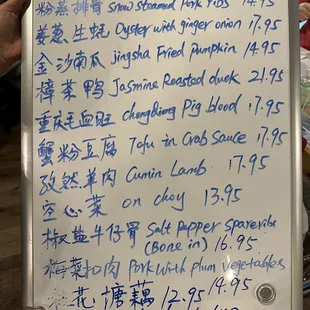 粉蒸排骨 Snow steamed Pork ribs 14.95
姜葱生蚝 Oyster with ginger onion 17.95
金沙南瓜 jingsha Fried Pumpkin 14.95
樟茶鸭 Jasmine Roasted duck 21.95
重庆毛血旺 Chongqing Pig blood 17.95
蟹粉豆腐 Tofu in Crab Sauce 17.95
孜然羊肉 Cumin Lamb 17.95
空心菜 on choy 13.95
椒盐牛仔骨 Salt Pepper Spareribs
(Bone in) 16.95
梅菜扣肉 Pork with plum vegetables
14.95
花塘藕 12.95